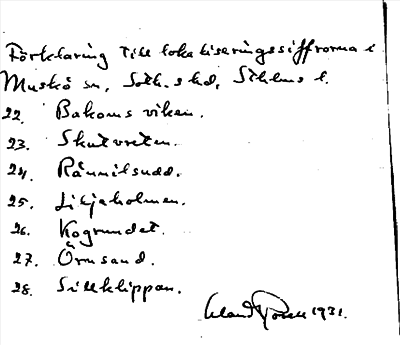 Förklaring till lokaliseringssiffrorna i
Muskö sn, Soth.s hd, Sthlms l.
22. Bakomsviken.
23. Skutvreten.
24. Rännilsudd.
25. Liljeholmen.
26. Kogrundet.
27. Örnsand.
28. Sillklippan.
1931.